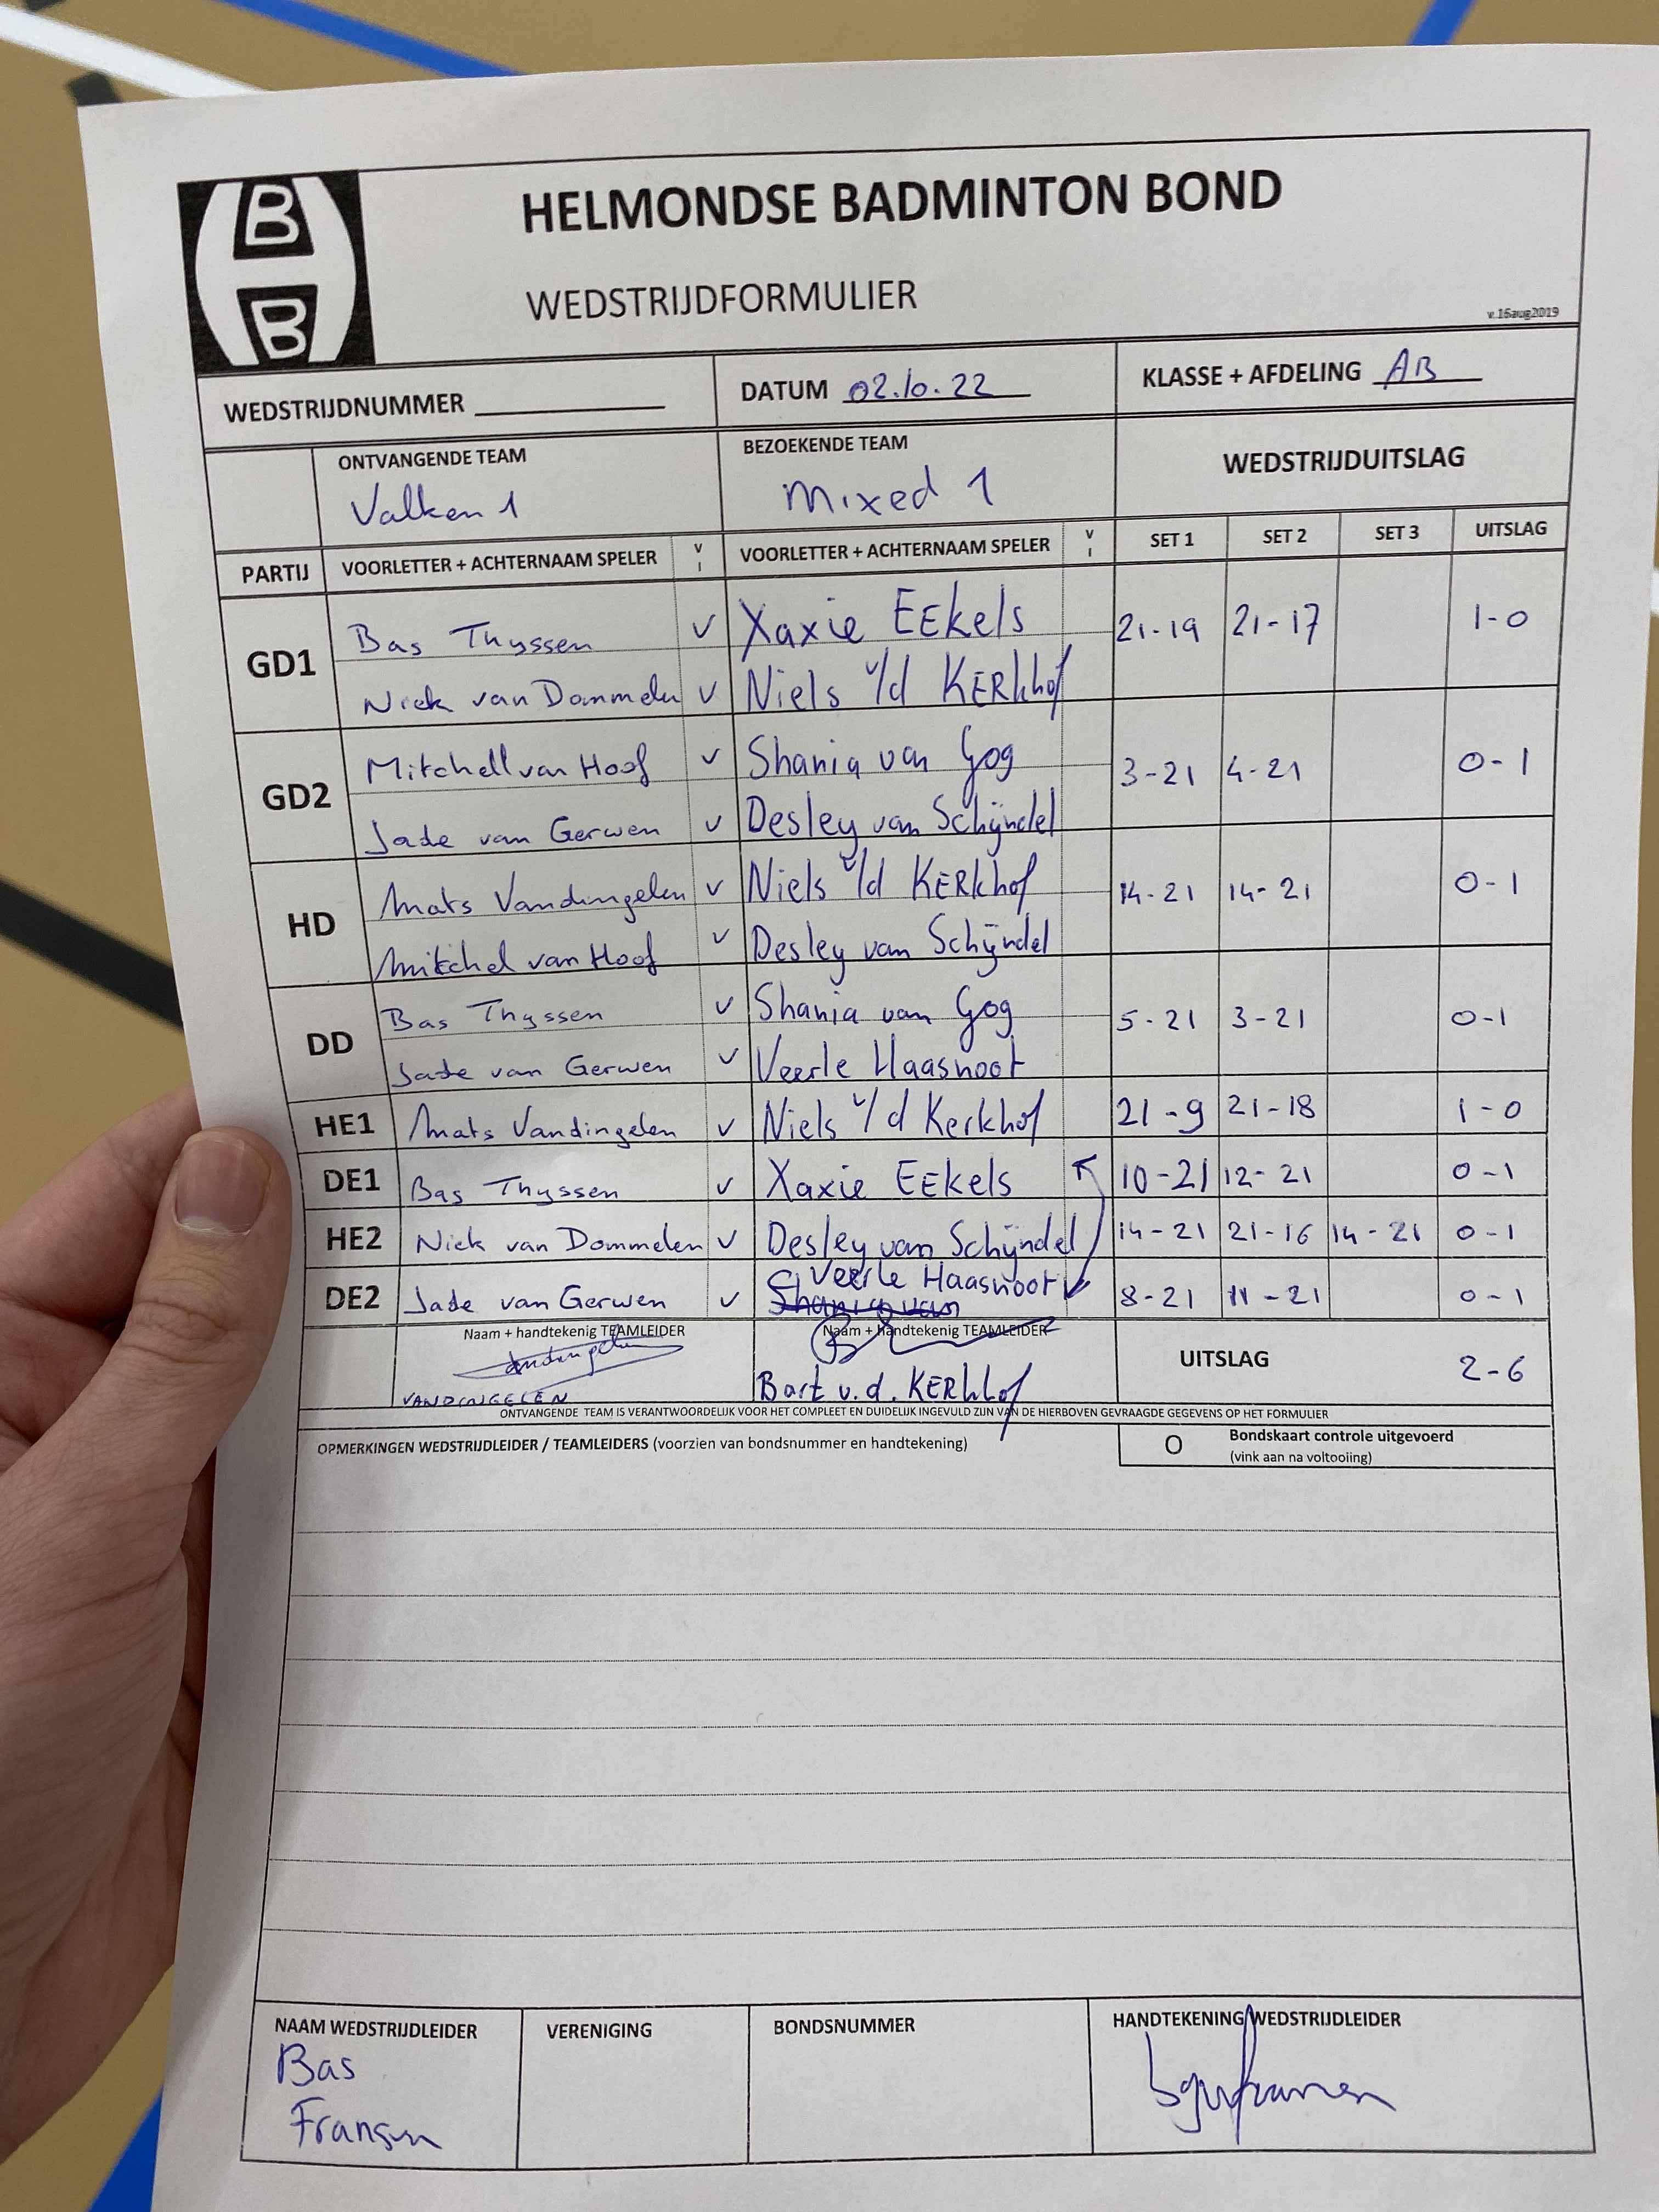 B
B
HELMONDSE BADMINTON BOND
WEDSTRIJDFORMULIER
v.16aug2019
WEDSTRIJDNUMMER
DATUM 02.10.22
KLASSE + AFDELING AB
ONTVANGENDE TEAM
Valken 1
BEZOEKENDE TEAM
Mixed 1
WEDSTRIJDUITSLAG
PARTIJ VOORLETTER + ACHTERNAAM SPELER V I VOORLETTER + ACHTERNAAM SPELER V I SET 1 SET 2 SET 3 UITSLAG
GD1 Bas Thyssen V Xaxie EEkels 21-19 21-17 1-0
Nick van Dommelen V Niels v/d KERkhof
GD2 Mitchell van Hoof V Shania van Gog 3-21 4-21 0-1
Jade van Gerwen V Desley van Schijndel
HD Mats Vandingelen V Niels v/d KERkhof 14-21 14-21 0-1
Mitchel van Hoof V Desley van Schijndel
DD Bas Thyssen V Shania van Gog 5-21 3-21 0-1
Jade van Gerwen V Veerle Haasnoot
HE1 Mats Vandingelen V Niels v/d Kerkhof 21-9 21-18 1-0
DE1 Bas Thyssen V Xaxie EEkels 10-21 12-21 0-1
HE2 Niek van Dommelen V Desley van Schijndel 14-21 21-16 14-21 0-1
DE2 Jade van Gerwen V Veerle Haasnoot 8-21 11-21 0-1
Shania van
Naam + handtekenig TEAMLEIDER
VANDINGELEN
Naam + handtekenig TEAMLEIDER
Bart v.d. KERkhof
UITSLAG 2-6
ONTVANGENDE TEAM IS VERANTWOORDELIJK VOOR HET COMPLEET EN DUIDELIJK INGEVULD ZIJN VAN DE HIERBOVEN GEVRAAGDE GEGEVENS OP HET FORMULIER
OPMERKINGEN WEDSTRIJDLEIDER / TEAMLEIDERS (voorzien van bondsnummer en handtekening)
O Bondskaart controle uitgevoerd
(vink aan na voltooiing)
NAAM WEDSTRIJDLEIDER
Bas
Fransen
VERENIGING
BONDSNUMMER
HANDTEKENING WEDSTRIJDLEIDER